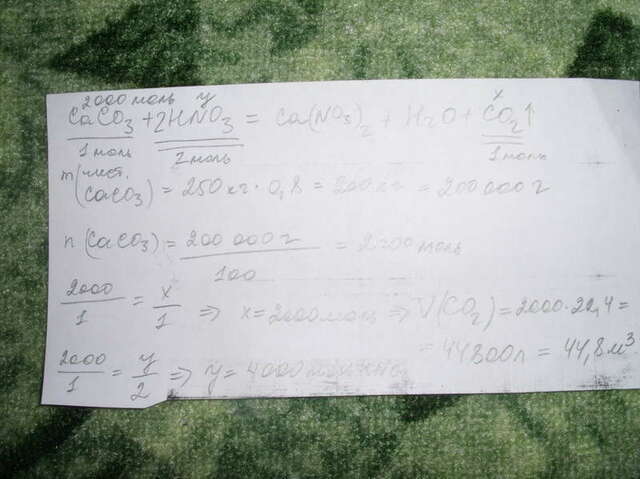 2000 моль y x
CaCO₃ + 2HNO₃ = Ca(NO₃)₂ + H₂O + CO₂↑
1 моль 2 моль 1 моль
m чист. (CaCO₃) = 250 кг · 0,8 = 200 кг = 200 000 г
n (CaCO₃) = 200 000 г / 100 = 2000 моль
2000/1 = x/1 ⇒ x = 2000 моль ⇒ V(CO₂) = 2000·22,4 =
= 44800 л = 44,8 м³
2000/1 = y/2 ⇒ y = 4000 моль HNO₃